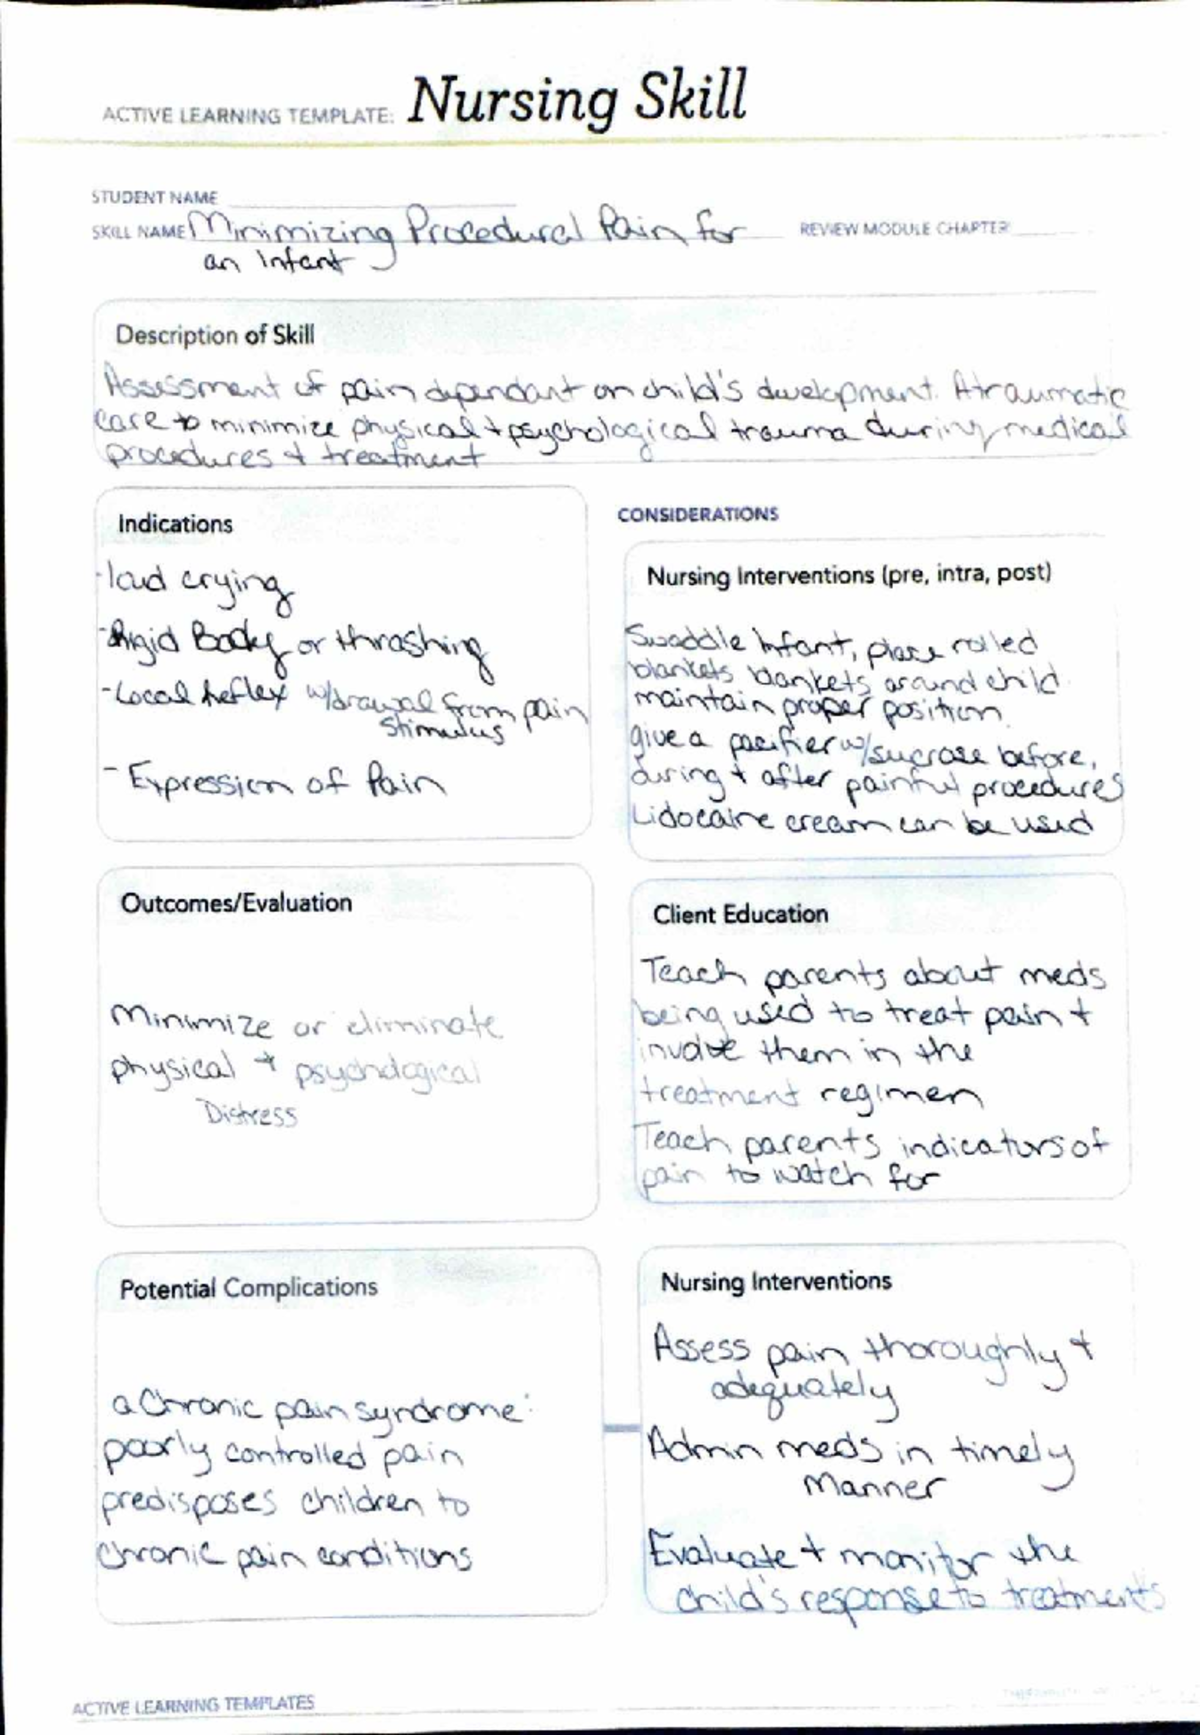 ACTIVE LEARNING TEMPLATE: Nursing Skill
STUDENT NAME
SKILL NAME Minimizing Procedural Pain for
an Infant
REVIEW MODULE CHAPTER
Description of Skill
Assessment of pain dependant on child's development. Atraumatic
care to minimize physical + psychological trauma during medical
procedures + treatment
Indications
-loud crying
-Rigid Body or thrashing
-Local Reflex w/drawal from pain
stimulus
- Expression of Pain
CONSIDERATIONS
Nursing Interventions (pre, intra, post)
Swaddle Infant, place rolled
blankets blankets around child
maintain proper position.
give a pacifier w/sucrose before,
during + after painful procedures
Lidocaine cream can be used
Outcomes/Evaluation
Minimize or eliminate
physical + psychological
Distress
Client Education
Teach parents about meds
being used to treat pain +
involve them in the
treatment regimen
Teach parents indicators of
pain to watch for
Potential Complications
a Chronic pain syndrome:
poorly controlled pain
predisposes children to
chronic pain conditions
Nursing Interventions
Assess pain thoroughly +
adequately
Admin meds in timely
Manner
Evaluate + monitor the
child's response to treatments
ACTIVE LEARNING TEMPLATES